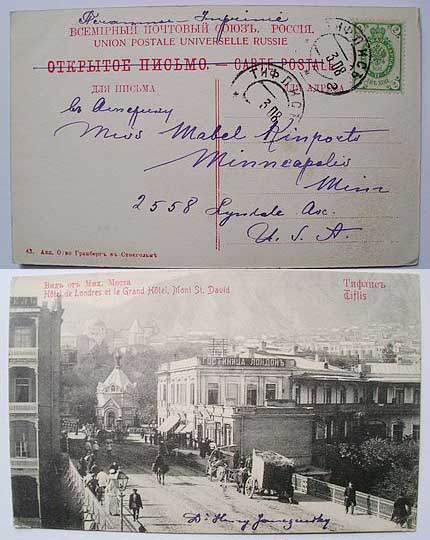 Imprimé
ВСЕМІРНЫЙ ПОЧТОВЫЙ СОЮЗЪ. РОССІЯ.
UNION POSTALE UNIVERSELLE RUSSIE
ОТКРЫТОЕ ПИСЬМО. — CARTE POSTALE
ДЛЯ ПИСЬМА
ДЛЯ АДРЕСА
ТИФЛИСЪ
ТИФЛИСЪ
въ Америку
Miss Mabel
Minneapolis
Minn
2558 Lyndale Ave.
U. S. A.
42. Акц. О-во Гранбергъ въ Стокгольмѣ
Видъ отъ Мих. Моста
Hôtel de Londres et le Grand Hôtel, Mont St. David
Тифлисъ
Tiflis
ГОСТИННИЦА ЛОНДОНЪ
Dr Henry